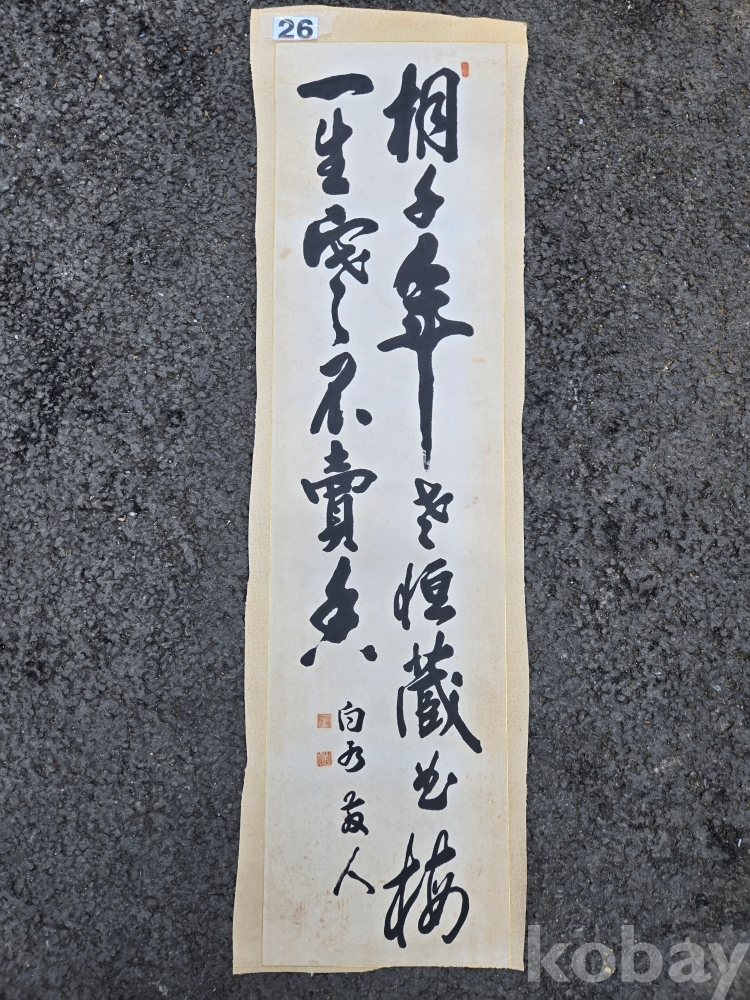 26
桐千年老恒藏曲梅
一生寒不賣香
白 散人
kobay